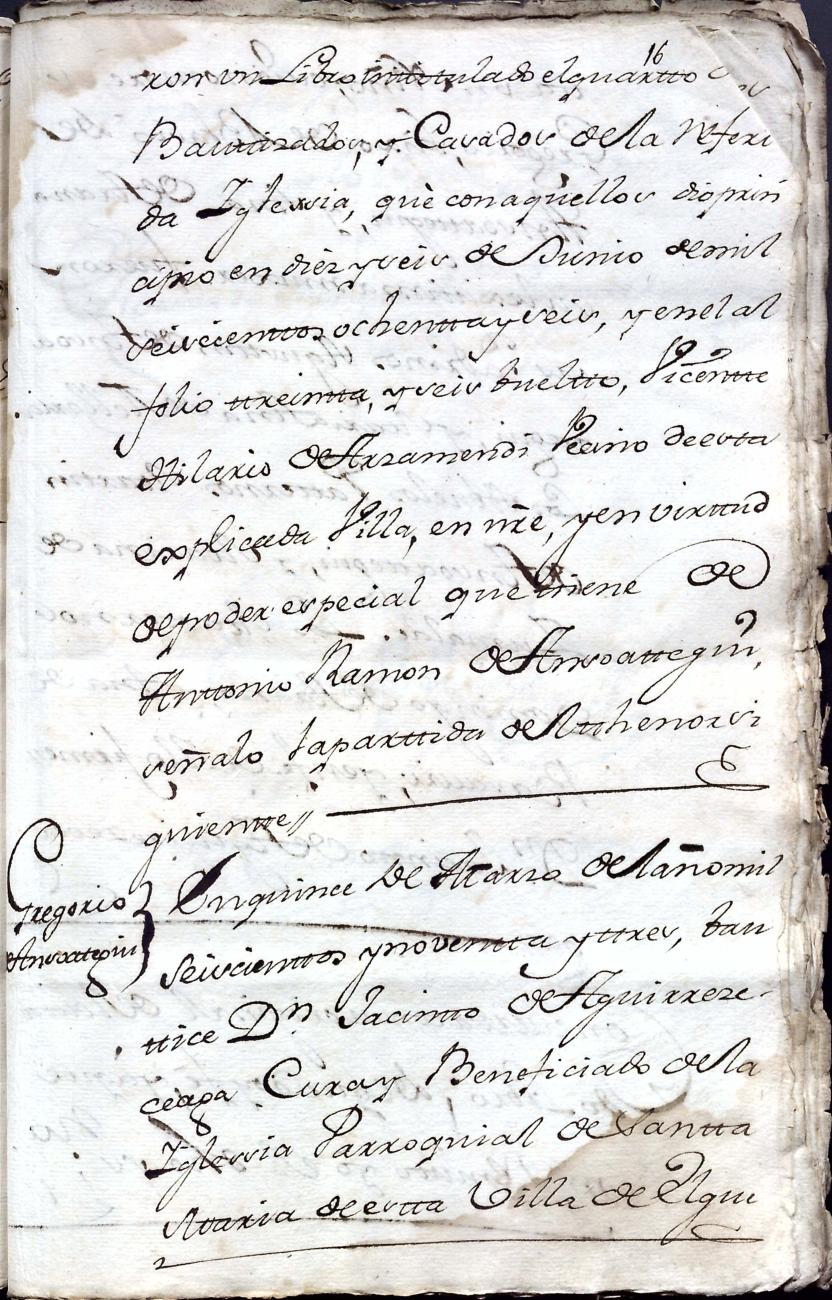 16
ron vn Libro inttitulado el quartto de
Bauttizados, y Casados de la referi
da Iglessia, què con aquellos dio prin
cipio en diez y seis de Junio de mil
seiscienttos ochentta y seis, y en el al
folio ttreintta, y seis bueltto, Vicentte
Hilario de Arzamendi Vecino de esta
explicada Villa, en nre, y en virttud
de poder especial que ttiene de
Anttonio Ramon de Ansoattegui,
señalo la parttida del tthenor si
guientte
Gregorio
Ansoategui
En quince de Marzo del año mil
seiscienttos y noventta y ttres, bau
ttice Dn Jacintto de Aguirreze-
ceaga Cura y Beneficiado de la
Iglessia Parroquial de Santta
Maria de estta Villa de Elgue